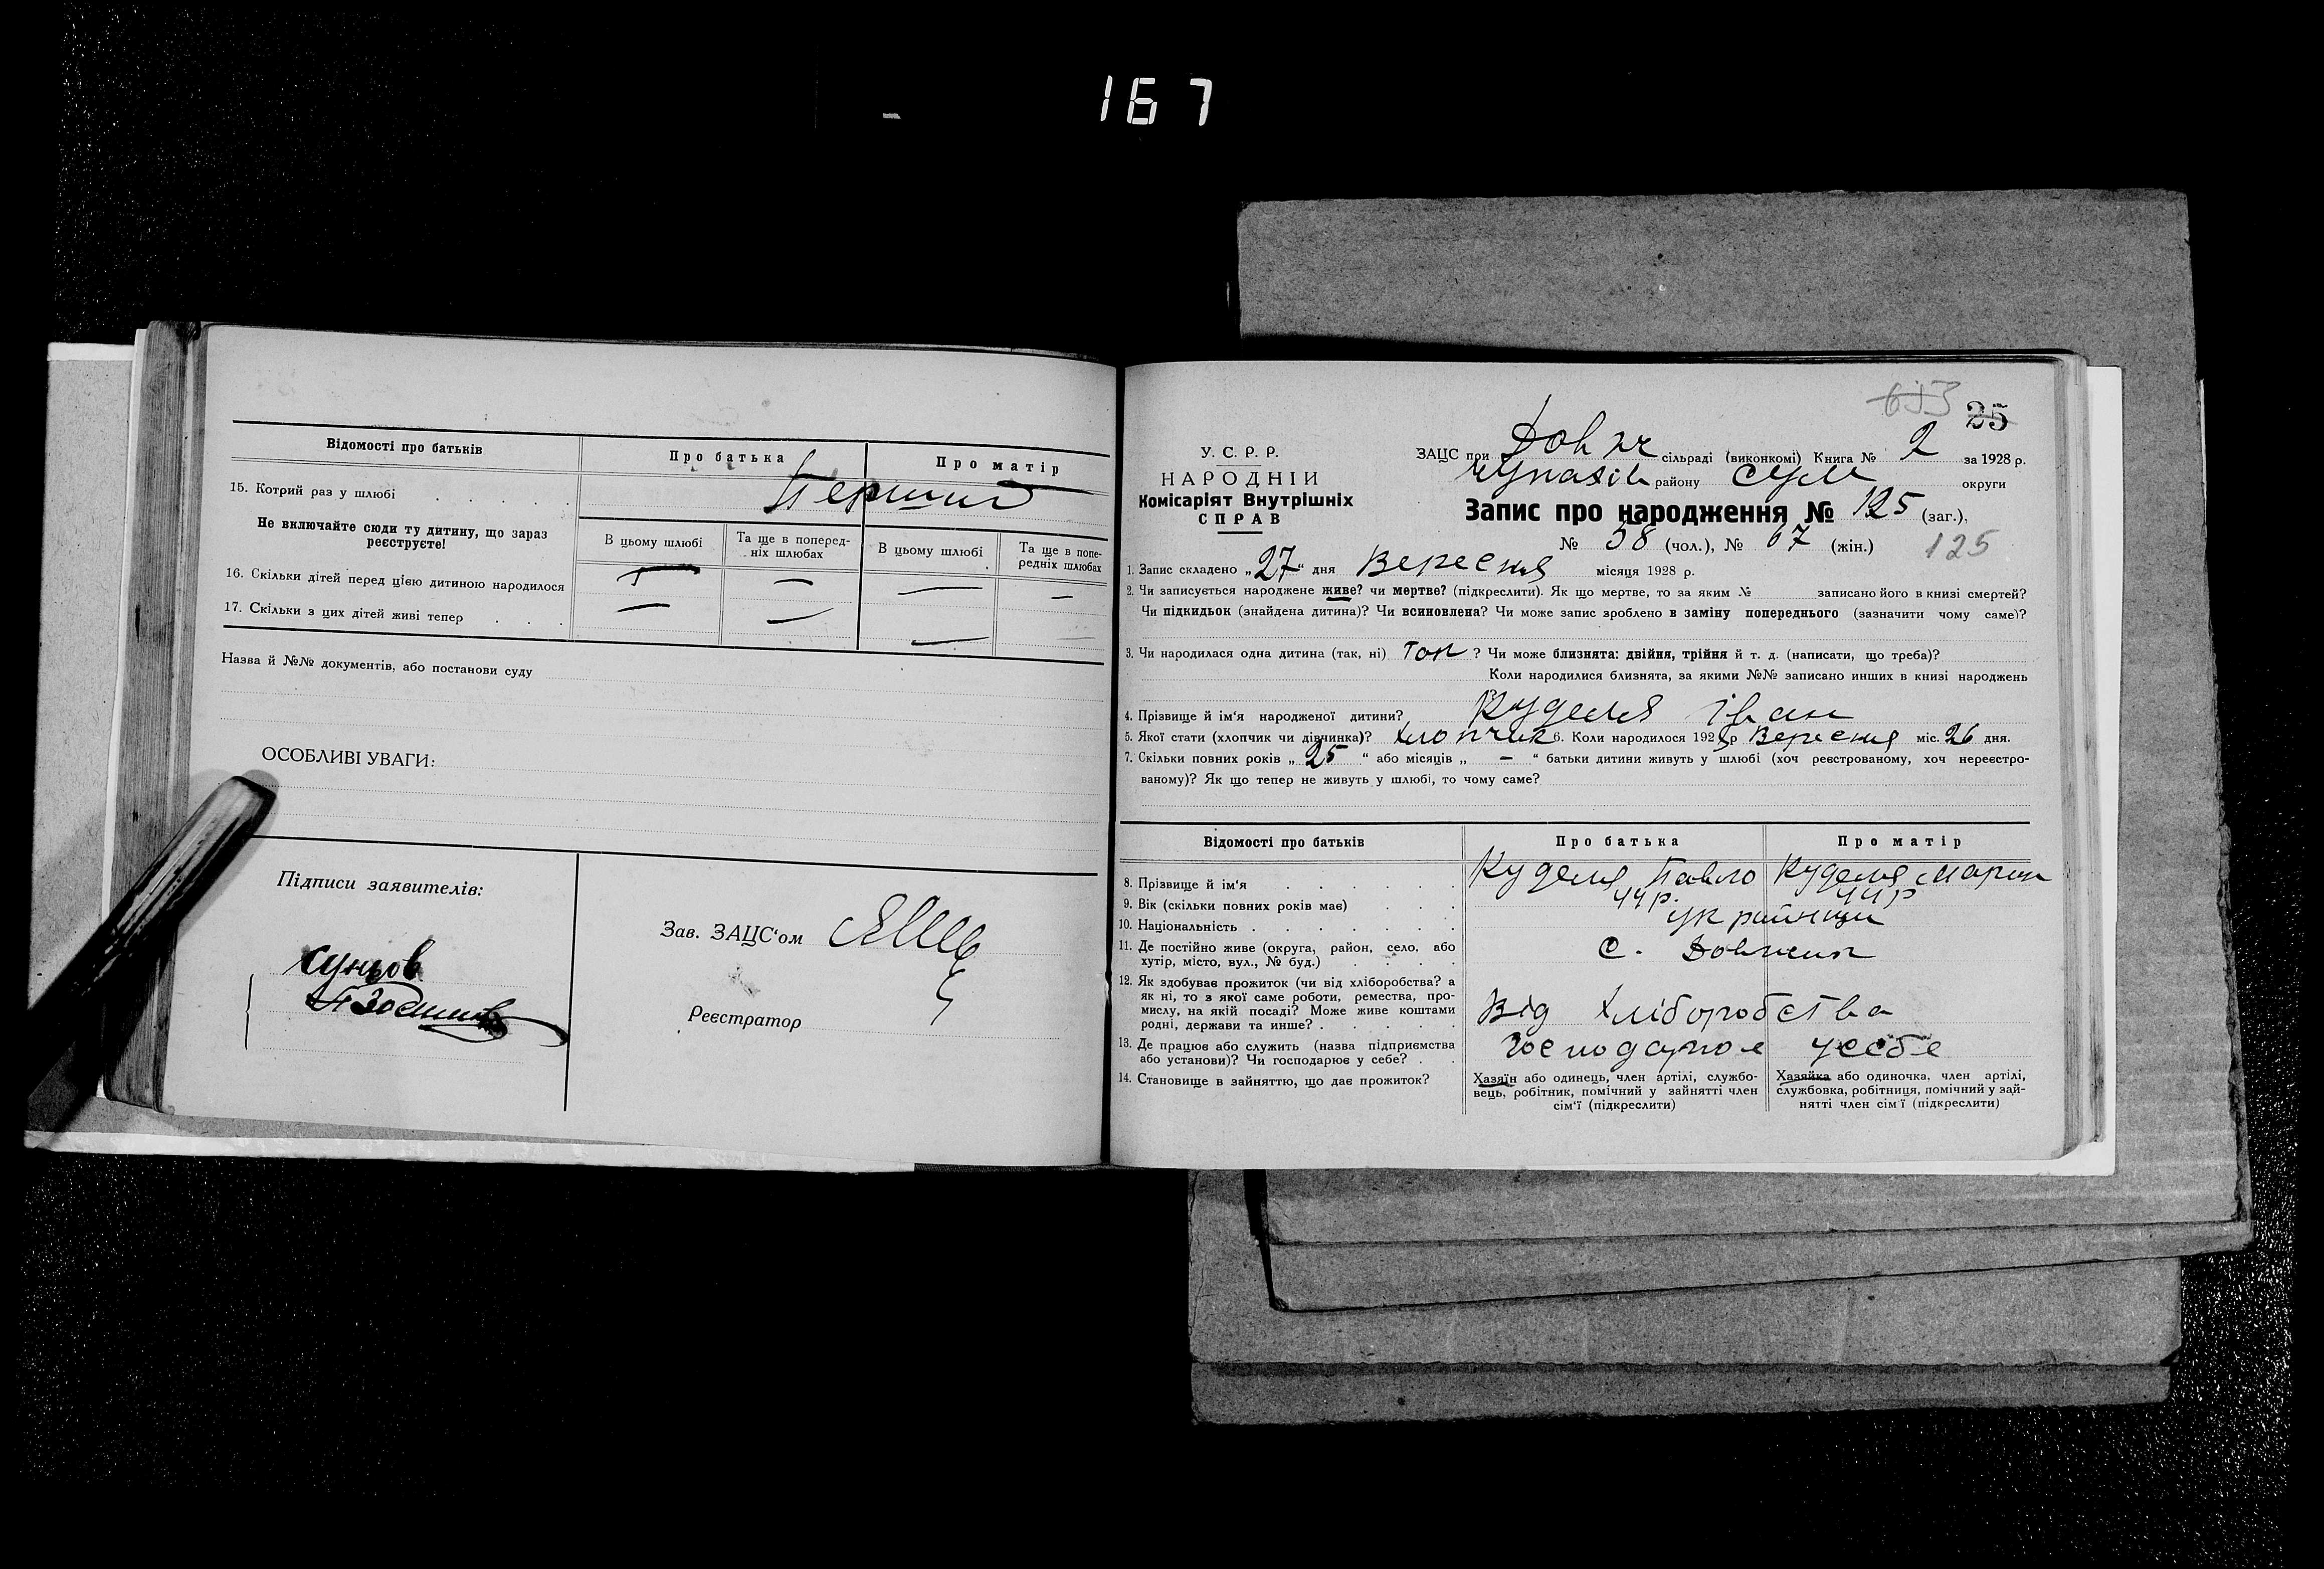 167
Відомості про батьків
Про батька
Про матір
15. Котрий раз у шлюбі . . . . .
Перший
Не включайте сюди ту дитину, що зараз
реєструєте!
В цьому шлюбі
Та ще в поперед-
ніх шлюбах
В цьому шлюбі
Та ще в попе-
редніх шлюбах
16. Скільки дітей перед цією дитиною народилося — — — —
17. Скільки з цих дітей живі тепер . . . — — — —
Назва й №№ документів, або постанови суду
ОСОБЛИВІ УВАГИ:
Підписи заявителів:
Зав. ЗАЦС‘ом
Реєстратор
25
У. С. Р. Р.
НАРОДНІЙ
Комісаріят Внутрішніх
СПРАВ
ЗАЦС при Довж сільраді (виконкомі) Книга № 2 за 1928 р.
району Сум округи
Запис про народження № 125 (заг.),
№ 58 (чол.), № 67 (жін.) 125
1. Запис складено „27“ дня Вересня місяця 1928 р.
2. Чи записується народжене живе? чи мертве? (підкреслити). Як що мертве, то за яким № записано його в книзі смертей?
Чи підкидьок (знайдена дитина)? Чи всиновлена? Чи може запис зроблено в заміну попереднього (зазначити чому саме)?
3. Чи народилася одна дитина (так, ні) Так ? Чи може близнята: двійня, трійня й т. д. (написати, що треба)?
Коли народилися близнята, за якими №№ записано инших в книзі народжень
4. Прізвище й ім‘я народженої дитини? Куделя Іван
5. Якої стати (хлопчик чи дівчинка)? Хлопчик 6. Коли народилося 1928 р Вересня міс. 26 дня.
7. Скільки повних років „ 25 “ або місяців „ — “ батьки дитини живуть у шлюбі (хоч реєстрованому, хоч нереєстро-
ваному)? Як що тепер не живуть у шлюбі, то чому саме?
Відомості про батьків
Про батька
Про матір
8. Прізвище й ім‘я . . . . . . Куделя Павло Куделя Мария
9. Вік (скільки повних років має) . . . 44 р. 44 р
10. Національність . . . . . . . українци
11. Де постійно живе (округа, район, село, або
хутір, місто, вул., № буд.) . . . .
с. Довжик
12. Як здобуває прожиток (чи від хліборобства? а
як ні, то з якої саме роботи, ремества, про-
мислу, на якій посаді? Може живе коштами
родні, держави та инше? . . . . .
Від Хліборобства
13. Де працює або служить (назва підприємства
або установи)? Чи господарює у себе? . .
Господарює усебе
14. Становище в зайняттю, що дає прожиток?
Хазяїн або одинець, член артілі, службо-
вець, робітник, помічний у зайнятті член
сім‘ї (підкреслити)
Хазяйка або одиночка, член артілі,
службовка, робітниця, помічний у зай-
нятті член сім‘ї (підкреслити)